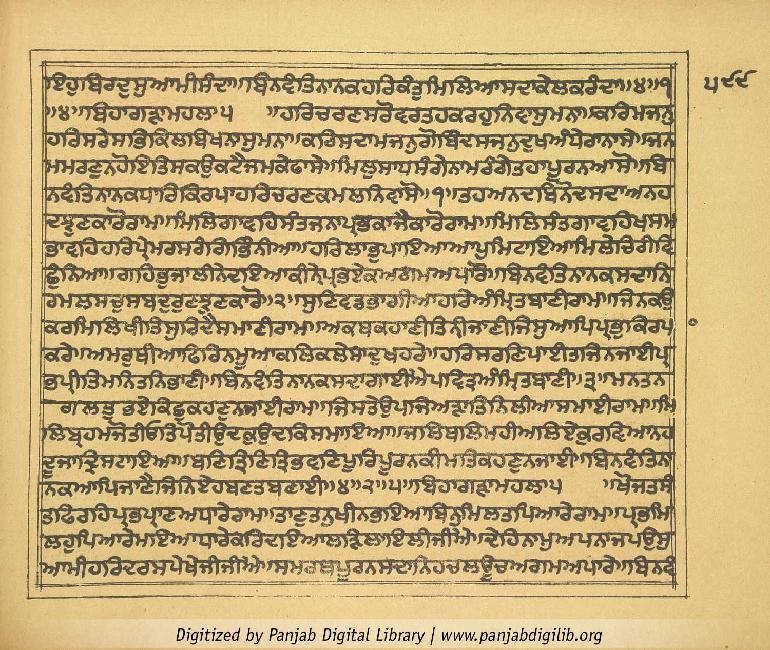 ਇਹੁਬਿਰਦੁਸੁਆਮੀਸੰਦਾ॥ਬਿਨਵੰਤਿਨਾਨਕਹਰਿਕੰਤੁਮਿਲਿਆਸਦਾਕੇਲਕਰੰਦਾ॥੪॥੧
॥੪॥ਬਿਹਾਗੜਾਮਹਲਾ੫ ॥ਹਰਿਚਰਣਸਰੋਵਰਤਹਕਰਹੁਨਿਵਾਸੁਮਨਾ॥ਕਰਿਮਜਨੁ
ਹਰਿਸਰੇਸਭਿਕਿਲਬਿਖਨਾਸੁਮਨਾ॥ਕਰਿਸਦਾਮਜਨੁਗੋਬਿੰਦਸਜਨੁਦੁਖਅੰਧੇਰਾਨਾਸੇ॥ਜਨ
ਮਮਰਣੁਨਹੋਇਤਿਸਕਉਕਟੈਜਮਕੇਫਾਸੇ॥ਮਿਲੁਸਾਧਸੰਗੇਨਾਮਰੰਗੇਤਹਾਪੂਰਨਆਸੋ॥ਬਿ
ਨਵੰਤਿਨਾਨਕਧਾਰਿਕਿਰਪਾਹਰਿਚਰਣਕਮਲਨਿਵਾਸੋ॥੧॥ਤਹਅਨਦਬਿਨੋਦਸਦਾਅਨਹ
ਦਝੁਣਕਾਰੋਰਾਮ॥ਮਿਲਿਗਾਵਹਿਸੰਤਜਨਾਪ੍ਰਭਕਾਜੈਕਾਰੋਰਾਮ॥ਮਿਲਿਸੰਤਗਾਵਹਿਖਸਮ
ਭਾਵਹਿਹਰਿਪ੍ਰੇਮਰਸਰੰਗਿਭਿੰਨੀਆ॥ਹਰਿਲਾਭੁਪਾਇਆਆਪੁਮਿਟਾਇਆਮਿਲੇਚਿਰੀਵਿ
ਛੁੰਨਿਆ॥ਗਹਿਭੁਜਾਲੀਨੇਦਇਆਕੀਨੇਪ੍ਰਭਏਕਅਗਮਅਪਾਰੋ॥ਬਿਨਵੰਤਿਨਾਨਕਸਦਾਨਿ
ਰਮਲਸਚੁਸਬਦੁਰੁਣਝੁਣਕਾਰੋ॥੨॥ਸੁਣਿਵਡਭਾਗੀਆਹਰਿਅੰਮ੍ਰਿਤਬਾਣੀਰਾਮ॥ਜਿਨਕਉ
ਕਰਮਿਲਿਖੀਤਿਸੁਰਿਦੈਸਮਾਣੀਰਾਮ॥ਅਕਥਕਹਾਣੀਤਿਨੀਜਾਣੀਜਿਸੁਆਪਿਪ੍ਰਭੁਕਿਰਪ
ਕਰੇ॥ਅਮਰੁਥੀਆਫਿਰਿਨਮੂਆਕਲਿਕਲੇਸਾਦੁਖਹਰੇ॥ਹਰਿਸਰਣਿਪਾਈਤਜਿਨਜਾਈਪ੍ਰ
ਭਪ੍ਰੀਤਿਮਨਿਤਨਿਭਾਣੀ॥ਬਿਨਵੰਤਿਨਾਨਕਸਦਾਗਾਈਐਪਵਿਤ੍ਰਅੰਮ੍ਰਿਤਬਾਣੀ॥੩॥ਮਨਤਨ
ਗਲਤੁਭਏਕਿਛੁਕਹਣੁਨਜਾਈਰਾਮ॥ਜਿਸਤੇਉਪਜਿਅੜਾਤਿਨਿਲੀਆਸਮਾਈਰਾਮ॥ਮਿ
ਲਿਬ੍ਰਹਮਜੋਤੀਓਤਿਪੋਤੀਉਦਕੁਉਦਕਿਸਮਾਇਆ॥ਜਲਿਥਲਿਮਹੀਅਲਿਏਕੁਰਵਿਆਨਹ
ਦੂਜਾਦ੍ਰਿਸਟਾਇਆ॥ਬਣਿਤ੍ਰਿਣਿਤ੍ਰਿਭਵਣਿਪੂਰਿਪੂਰਨਕੀਮਤਿਕਹਣੁਨਜਾਈ॥ਬਿਨਵੰਤਿਨਾ
ਨਕਆਪਿਜਾਣੈਜਿਨਿਏਹਬਣਤਬਣਾਈ॥੪॥੨॥੫॥ਬਿਹਾਗੜਾਮਹਲਾ੫ ॥ਖੋਜਤਸੰ
ਤਫਿਰਹਿਪ੍ਰਭਪ੍ਰਾਣਅਧਾਰੇਰਾਮ॥ਤਾਣੁਤਨੁਖੀਨਭਇਆਬਿਨੁਮਿਲਤਪਿਆਰੇਰਾਮ॥ਪ੍ਰਭਮਿ
ਲਹੁਪਿਆਰੇਮਇਆਧਾਰੇਕਰਿਦਇਆਲੜਿਲਾਇਲੀਜੀਐ॥ਦੇਹਿਨਾਮੁਅਪਨਾਜਪਉਸੁ
ਆਮੀਹਰਿਦਰਸਪੇਖੇਜੀਜੀਐ॥ਸਮਰਥਪੂਰਨਸਦਾਨਿਹਚਲਊਚਅਗਮਅਪਾਰੇ॥ਬਿਨਵੰ
Digitized by Panjab Digital Library | www.panjabdigilib.org